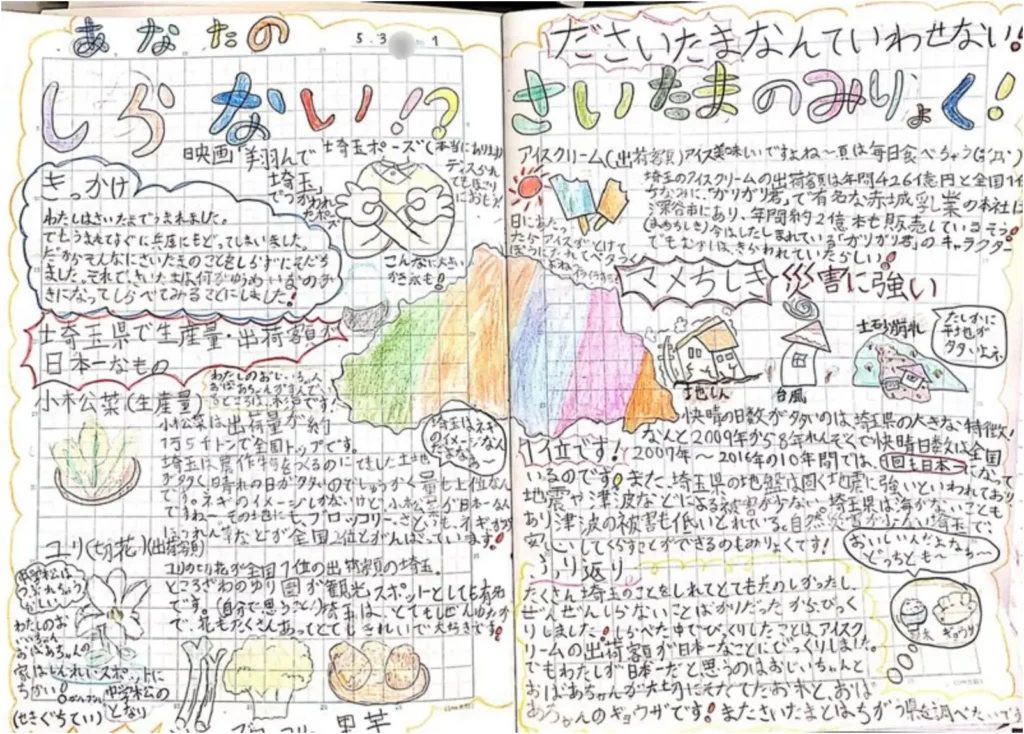 あなたの
5.3 1
しらない!?
映画「翔んで埼玉」でつかわれたポーズ
埼玉ポーズ(本当にあります)
きっかけ
わたしはさいたまでうまれました。
でもうまれてすぐに兵庫にもどってしまいました。
だからそんなにさいたまのことをしらずにそだち
ました。それで、さいたまは何がゆうめい
きになってしらべてみることにしました!
こんなに大きい
かき氷も!
埼玉県で生産量・出荷額が
日本一なもの
わたしのおじいちゃん
小松菜(生産量)
小松菜は出荷量が約
1万5千トンで全国トップです。
埼玉は農作物をつくるのにてきした土地
が多く晴れの日が多いのでしゅうかく量も上位なん
です。ネギのイメージしかないけど、小松菜が日本一なん
ですね〜その他にも、ブロッコリー、さといも、ネギ
ほうれん草などが全国2位とがんばっています!
埼玉はネギ
のイメージなん
だよなぁ〜
ユリ(切花)(出荷額)
ユリの切り花が全国1位の出荷額の埼玉。
ところざわのゆり園が観光スポットとしても有名
です。(自分で思うこと)埼玉は、とてもしぜんゆたか
で、花もたくさんあってとてもきれいで大好きです!
わたしのお
じいちゃん
おばあちゃんの
家はしんれいスポットに
ちかい!
中学校の
となり
(せきぐちてい)
ブロッコリー
里芋
ださいたまなんていわせない!
さいたまのみりょく!
アイスクリーム(出荷額)アイス美味しいですよね〜夏は毎日食べちゃう
埼玉のアイスクリームの出荷額は年間426億円と全国1位
ちなみに、「ガリガリ君」で有名な赤城乳業の本社は
深谷市にあり、年間約2億本も販売しているそう!
(まめちしき)今はしたしまれている「ガリガリ君」のキャラクター
でもむかしは、きらわれていたらしい!
日にあたっ
たらアイスがとけて
マメちしき
災害に強い
地しん
台風
土砂崩れ
たしかに
平地が
多いよね
快晴の日数が多いのは、埼玉県の大きな特徴!
なんと2009年から8年れんぞくで快晴日数は全国
1位です!
2007年〜2016年の10年間では、1回も日本一になって
いるのです!また、埼玉県の地盤は固く地震に強いといわれており
地震や津波などによる被害が少ない。埼玉県は海がないことも
あり津波の被害も低いとされている。自然災害が少ない埼玉で、
あんしんしてくらすことができるのもみりょくです!
おいしいんだよなぁ〜
どっちとも〜
ふり返り
たくさん埼玉のことをしれてとてもたのしかったし、
ぜんぜんしらないことばかりだったからびっく
りしました!しらべた中でびっくりしたことは、アイスク
リームの出荷額が日本一なことにびっくりしました。
でもわたしが日本一だと思うのはおじいちゃんと
おばあちゃんが大切にそだてたお米と、おば
あちゃんのギョウザです!またさいたまとはちがう県を調べたいです
お米
ギョウザ